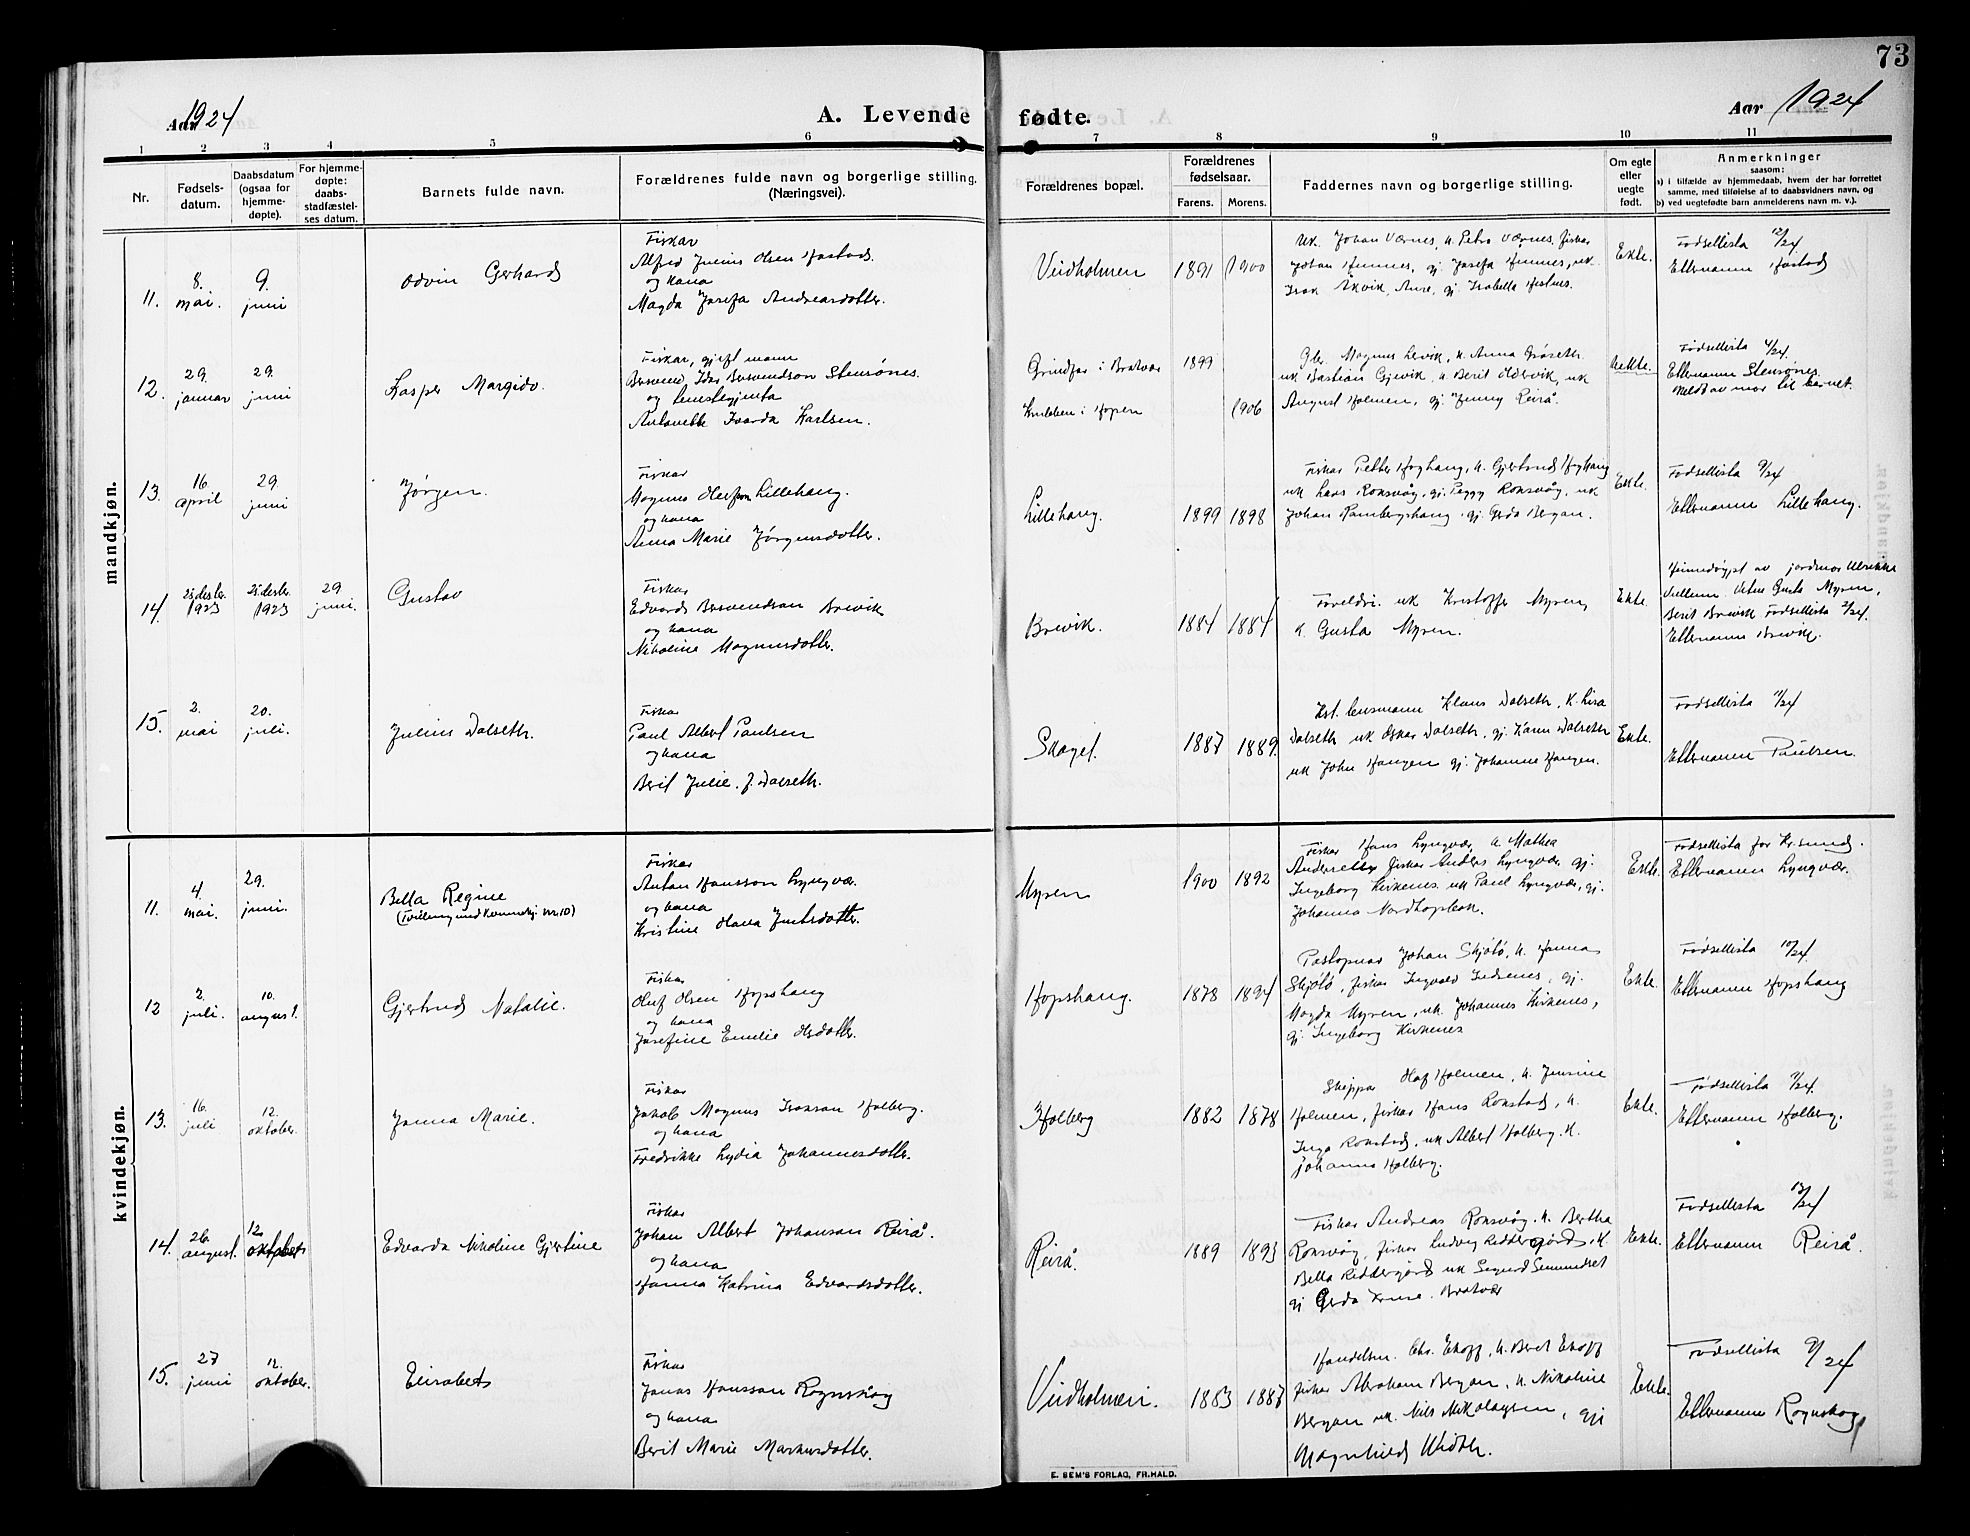 73
Aar 1924
A. Levende fødte.
Aar 1924
1 2 3 4 5 6 7 8 9 10 11
Nr.
Fødsels-
datum.
Daabsdatum
(ogsaa for
hjemme-
døpte).
For hjemme-
døpte:
daabs-
stadfæstel-
ses datum.
Barnets fulde navn.
Forældrenes fulde navn og borgerlige stilling.
(Næringsvei).
Forældrenes bopæl.
Forældrenes
fødselsaar.
Farens. Morens.
Faddernes navn og borgerlige stilling.
Om egte
eller
uegte
født.
Anmerkninger
saasom:
a) i tilfælde av hjemmedaab, hvem der har forrettet
samme, med tilføielse af to daabsvidners navn, og
b) ved uegtefødte barn anmelderens navn m. v.).
mandkjøn.
11.
8.
mai.
9.
juni
Odvin Gerhard
Fiskar
Alfred Julius Olsen Hastad
og kona
Magda Josefa Andreasdotter.
Veidholmen
1891 1900
uk. Johan Værnes, k. Petra Værnes, fiskar
Johan Hemnes, gj. Josefa Hemnes, uk.
Isak Ekvik, Aure, gj. Isabella Hestnes.
Ekte.
Fødsellista 12/24
Etternamn Hastad
12.
29.
januar
29.
juni
Kasper Margido.
Fiskar, gjift mann
Bersvend Idar Bersvendson Stensønes.
og tenestegjenta
Antonette Ivarda Karlsen.
Grindfar i Bratvær
1899
Kulsbben i Hopen
1906
Gbr. Magnus Leivik, k. Anna Grøseth.
uk Bastian Gjevik, k. Berit Oldervik, uk
August Holmen, gj. Jenny Reirå.
Uekte.
Fødsellista 4/24.
Etternamn Stensønes.
Meldt av mor til barnet.
13.
16.
april
29.
juni
Jørgen.
Fiskar
Magnus Olefson Lillehaug.
og kona
Anna Marie Jørgensdotter.
Lillehaug.
1899 1898
Fiskar Petter Hoghaug, k. Gjertrud Hoghaug
uk Lars Ronsvåg, gj. Peggy Ronsvåg, uk
Johan Rambergshaug, gj. Gerda Bergan.
Ekte.
Fødsellista 9/24
Etternamn Lillehaug.
14.
25. desbr.
1923
25. desbr.
1923
29
juni.
Gustav
Fiskar
Edvard Bersvendson Breivik
og kona
Nikoline Magnusdotter.
Breivik.
1884 1884
Foreldri. uk Kristoffer Myren,
k. Gusta Myren.
Ekte.
Heimedøypt av jordmor Ulrikke
Vullum. Vitne Gusta Myren,
Berit Breivik. Fødsellista 2/24.
Etternamn Breivik.
15.
2.
mai
20.
juli.
Julius Dalseth.
Fiskar
Paul Albert Paulsen
og kona
Berit Julie. f. Dalseth.
Skaget.
1887 1889.
Kst. lensmann Klaus Dalseth, k. Lisa
Dalseth uk Oskar Dalseth, gj. Karen Dalseth
uk John Haugen gj. Johanne Haugen.
Ekte.
Fødsellista 11/24
Etternamn Paulsen.
kvindekjøn.
11.
4.
mai.
29.
juni.
Bella Regine
(Tvilling med kvinnekj. nr. 10)
Fiskar
Anton Hansson Lyngvær.
og kona
Kristine Olava Jentsdotter.
Myren
1900 1892
Fiskar Hans Lyngvær, k. Mathea
Anders Lyngvær, gj.
Ingeborg Kirkenes. uk Paul Lyngvær, gj.
Johanna Nordhopen.
Ekte.
Fødsellista for Kr.sund.
Etternamn Lyngvær.
12
2.
juli.
10.
august.
Gjertrud Natalie.
Fiskar
Oluf Olsen Hopshaug
og kona
Josefine Emelie Olsdotter.
Hopshaug.
1878 1894
Postopnar Johan Skjølø, k. Hanna
Skjølø, fiskar Ingvald Indsenes, gj.
Magda Myren, uk. Johannes Kirkenes,
gj. Ingeborg Kirkenes
Ekte.
Fødsellista 10/24.
Etternamn Hopshaug
13.
16.
juli
12.
oktober.
Janna Marie.
Fiskar
Jakob Magnus Isakson Holberg.
og kona
Fredrikke Lydia Johannesdotter.
Holberg
1882 1878
Skippar Olaf Holmen, k. Jensine
Holmen, fiskar Hans Rokstad, k.
Inga Rokstad, uk Albert Holberg. k.
Johanna Holberg.
Ekte.
Fødsellista 7/24.
Etternamn Holberg.
14.
26.
august.
12.
oktober
Edvarda Nikoline Gjertine
Fiskar
Johan Albert Johansan Reirå.
og kona
Hanna Katrina Edvardsdotter.
Reirå.
1889 1893
Fiskar Andreas Ronsvåg, k. Bertha
Ronsvåg, fiskar Ludvig Riddergård, k.
Bella Riddergård uk Sigurd Semundset
gj Gerda . Bratvær
Ekte.
Fødsellista 13/24
Etternamn Reirå.
15.
27
juni
12.
oktober.
Elisabeth
Fiskar
Jonas Hansson Rognskog
og kona
Berit Marie Markusdotter.
Veidholmen.
1883 1887
Handelsm. Chr. Ekoff, k. Beret Ekoff
fiskar Abraham Bergan, k. Nikoline
Bergan uk. Nils Nikolaysen, gj
Magnhild Width.
Ekte.
Fødsellista 9/24
Etternamn Rognskog
E. SEM'S FORLAG, FR.HALD.